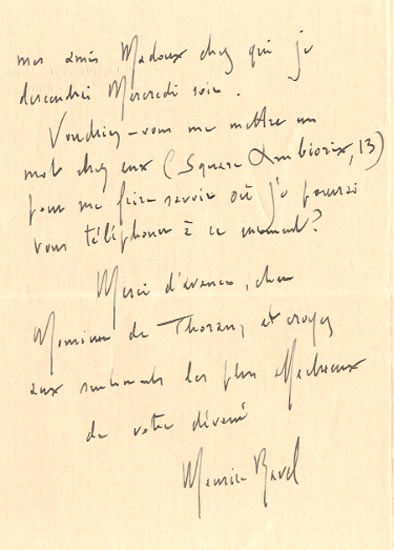 mes amis Madoux chez qui je
descendrai Mercredi soir.
Voudriez-vous me mettre un
mot chez eux (Square Ambiorix, 13)
pour me faire savoir où je pourrai
vous téléphoner à ce moment?
Merci d'avance, cher
Monsieur de Thoran, et croyez
aux sentiments les plus affectueux
de votre dévoué
Maurice Ravel